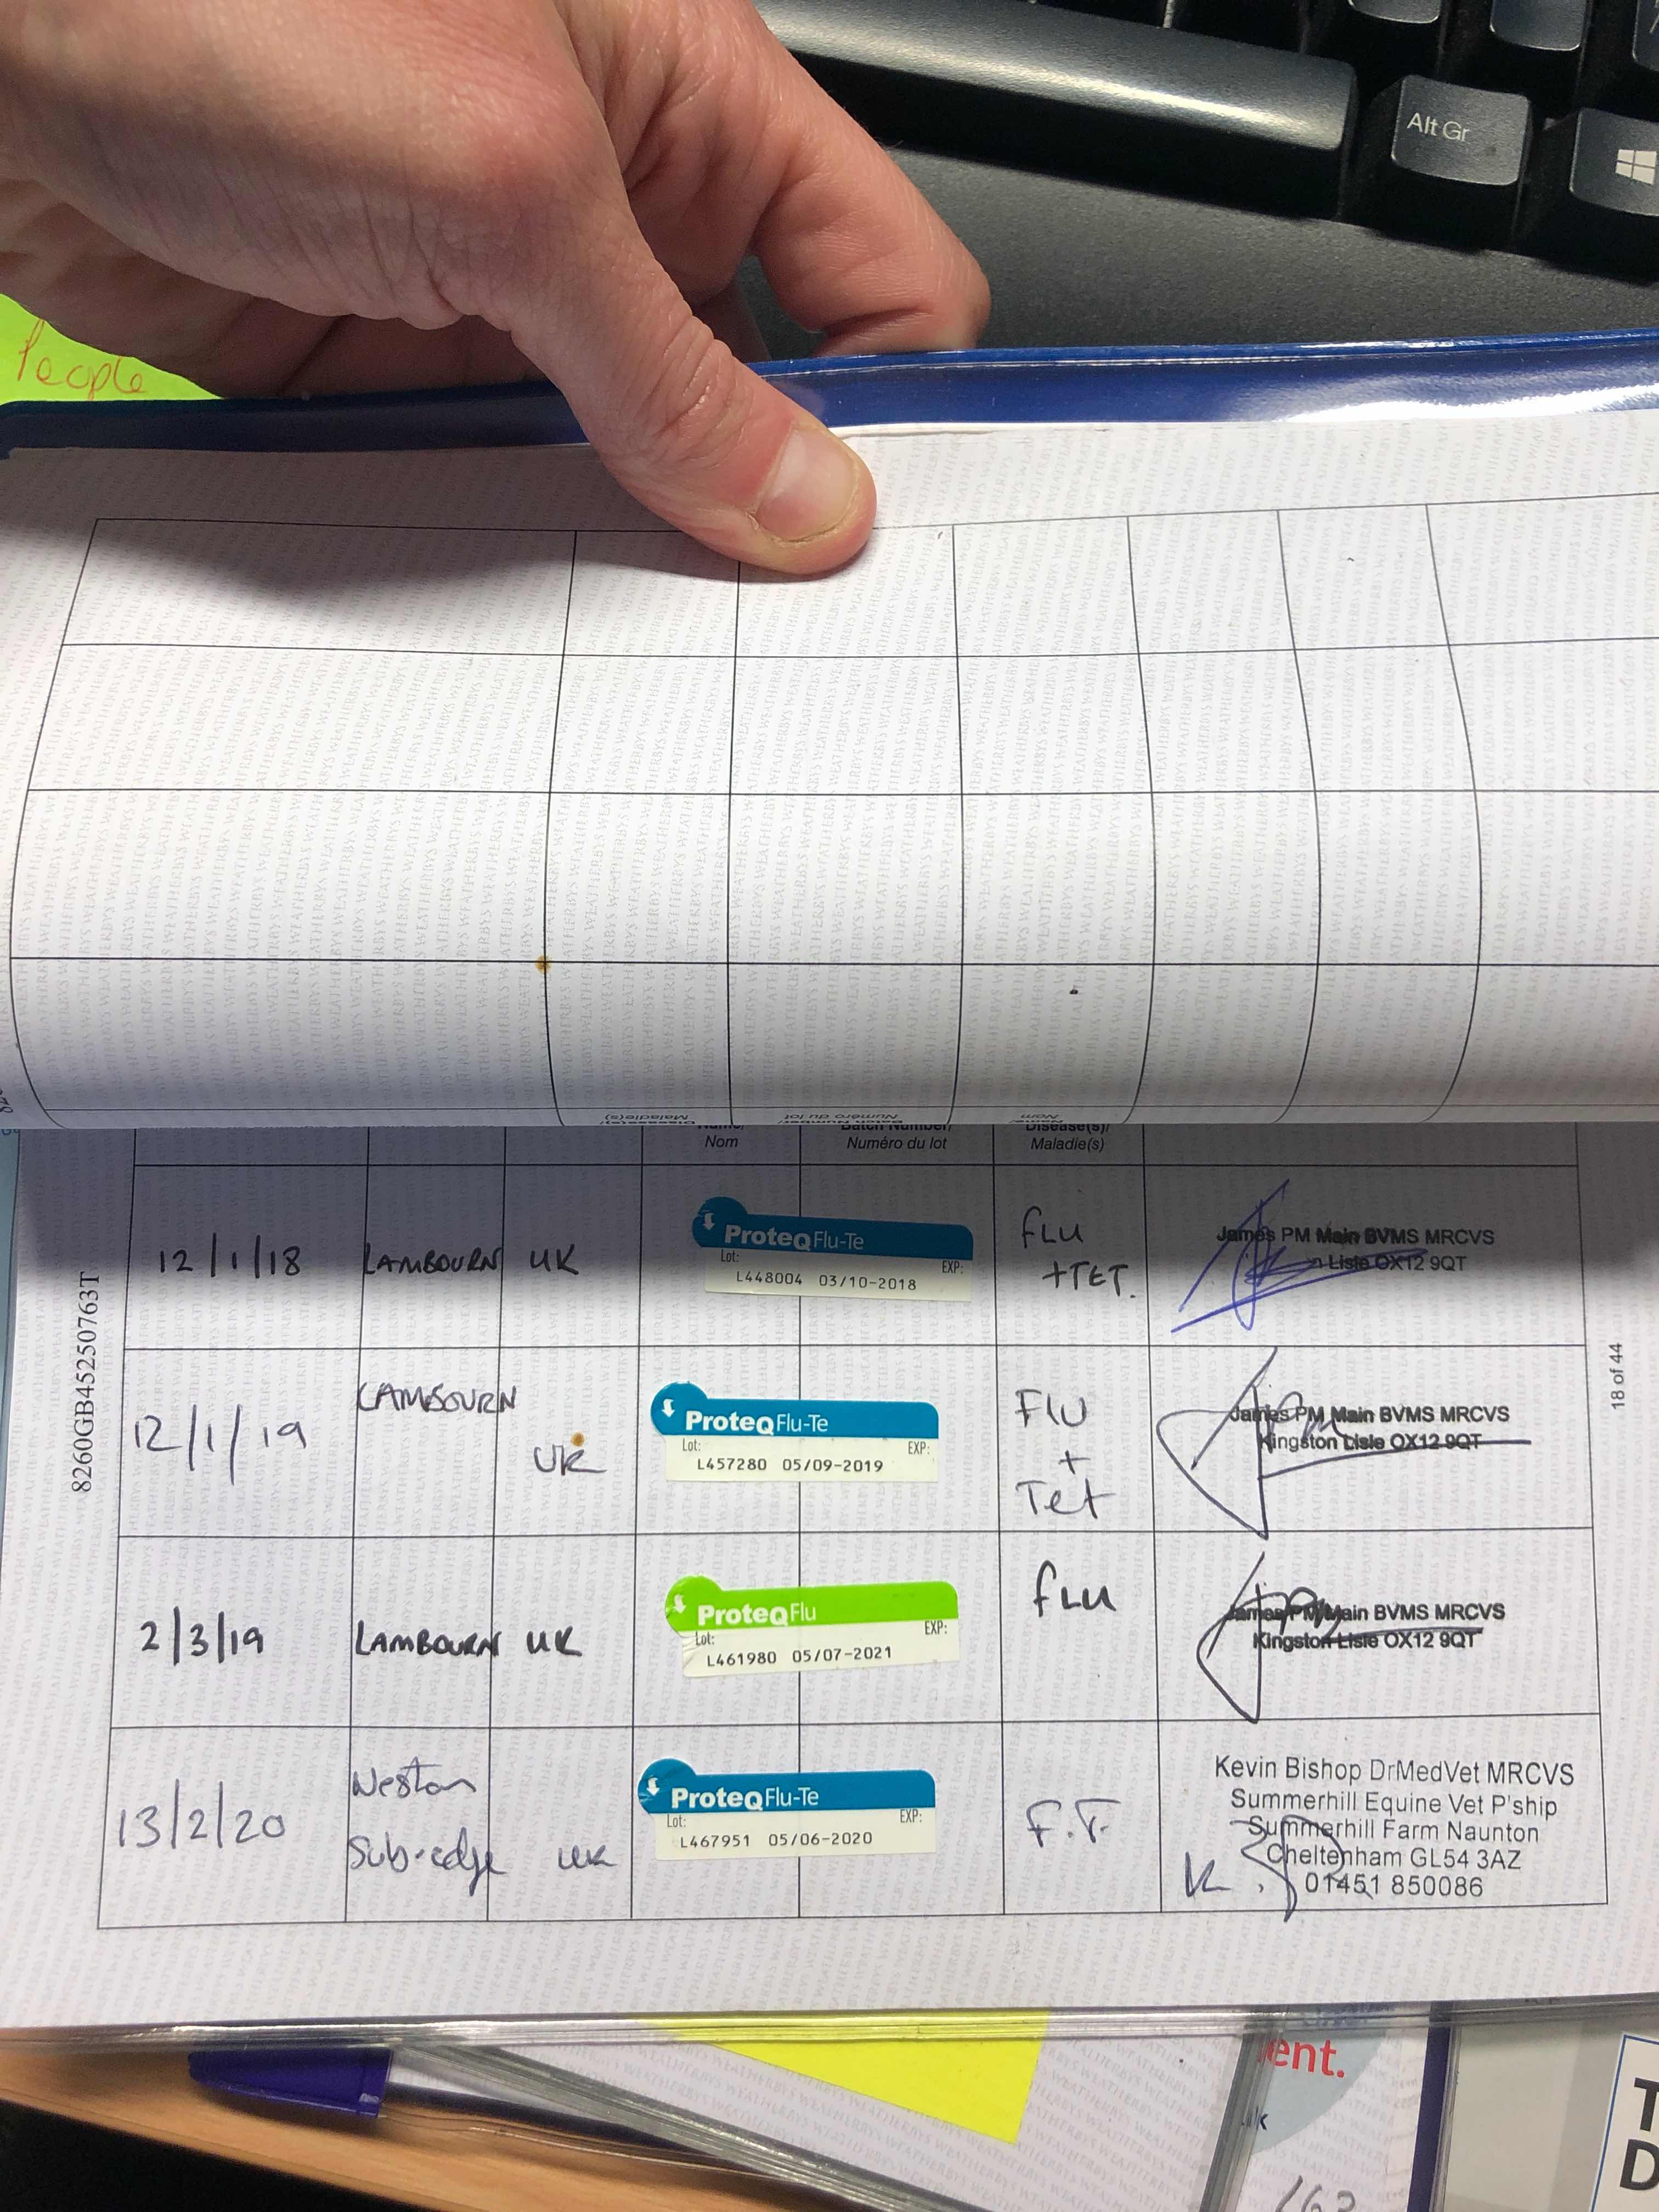 Alt Gr
People
Maladie(s)
Numéro du lot
Nom
Nom
Batch Number/
Numéro du lot
Disease(s)/
Maladie(s)
8260GB45250763T
18 of 44
12/1/18 LAMBOURN UK
ProteqFlu-Te
Lot: EXP:
L448004 03/10-2018
FLU
+TET.
James PM Main BVMS MRCVS
n Lisle OX12 9QT
12/1/19 LAMBOURN
UK
ProteqFlu-Te
Lot: EXP:
L457280 05/09-2019
FLU
+
Tet
James PM Main BVMS MRCVS
Kingston Lisle OX12 9QT
2/3/19 LAMBOURN UK
ProteqFlu
Lot: EXP:
L461980 05/07-2021
FLU
James PM Main BVMS MRCVS
Kingston Lisle OX12 9QT
13/2/20
Weston
Sub-edge UK
ProteqFlu-Te
Lot: EXP:
L467951 05/06-2020
F.T.
Kevin Bishop DrMedVet MRCVS
Summerhill Equine Vet P'ship
Summerhill Farm Naunton
Cheltenham GL54 3AZ
01451 850086
WEATHERBYS WEATHERBYS WEATHERBYS
ent.
T
D